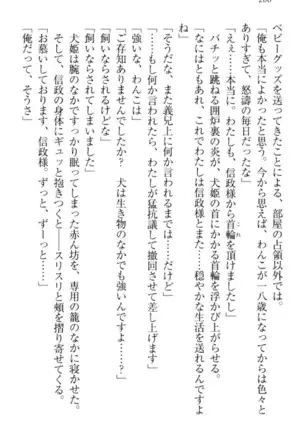 200
ベビーグッズを送ってきて以来、部屋の占領以外では。
「俺も本当によかったと思う。今から思えば、わんこが一八歳になってからは色々と
ありすぎて、怒濤の毎日だったな」
「ええ……本当に。わたしも、信政様から首輪を頂けましたし」
バチッと跳ねる囲炉裏の炎が、犬姫の首にかかる首輪を浮かび上がらせる。
「これからも、きっと、これでわたしは信政様とまた……穏やかな生活を送れるんですよ
ね」
「そうだな、また義兄上に何か言われるまでは……だけど」
「……もし何か言われたら、わたしが猛抗議して撤回させて差し上げます」
「強いな、わんこは」
「ご存知ありませんでしたか? 犬は生き物のなかでも強いんですよ……?」
「飼いならされてるけどな」
「飼いならされてしまいました」
犬姫は腕のなかですっかり眠ってしまった赤ん坊を、専用の籠のなかに寝かせ、
そして、信政の身体にギュッと抱きつくと――スリスリと頬を摺り寄せてくる。
「お慕いしております、信政様。ずっと、ずーっと……」
「俺だって、そうさ」